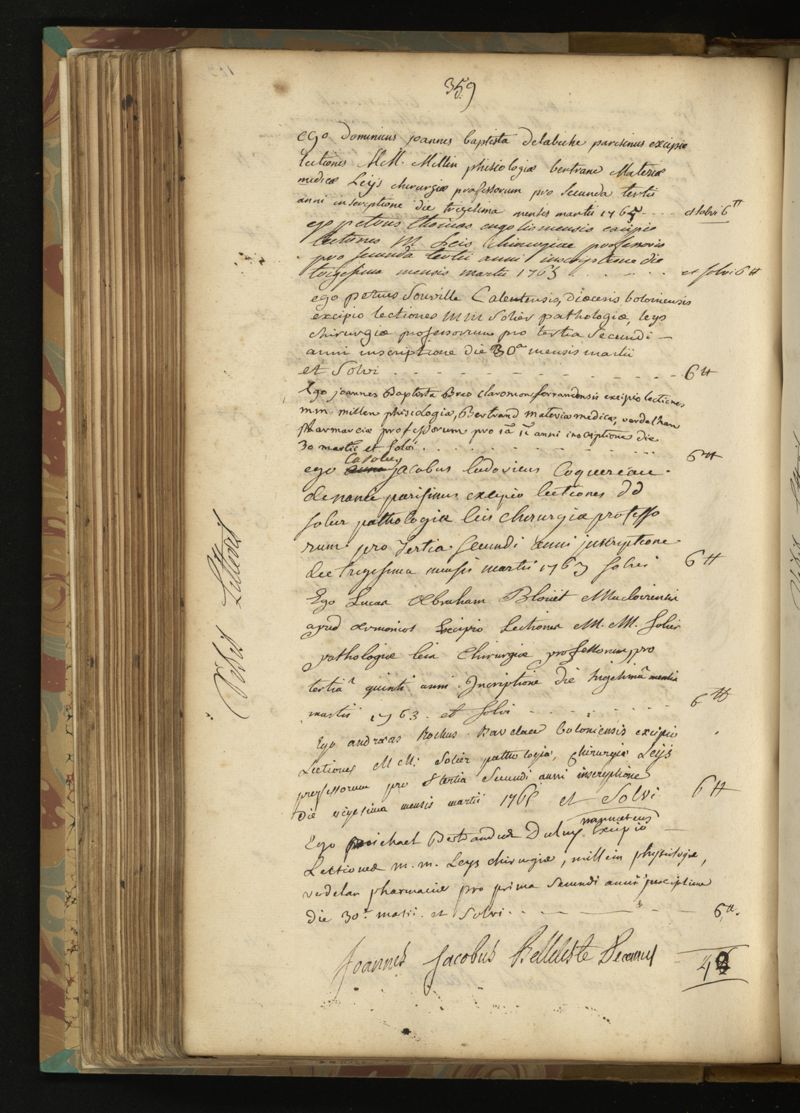 359
ego dominicus joannes baptista delabiche parisinus excipio
lectiones MM. Millin phisiologiæ bertrand Materiæ
medicæ Leijs chirurgiæ professorum pro secunda tertii
anni inscriptione die trigesima mensis martii 1765 . . . et solvi 6 tt
ego petrus thomas engolismensis excipio
lectiones M Leis Chirurgiae professoris
pro secunda tertii anni inscriptione die
trigesima mensis martii 1763 . . . . . . et solvi 6 tt
ego petrus Souville Calentensis, diœcesis boloniensis
excipio lectiones mm Solier pathologiæ, leys
chirurgiæ professorum pro tertia secundi
anni inscriptione die 30a mensis martii
et solvi . . . . . . . . 6 tt
Ego joannes Baptista Breo claromonsferrandensis excipio lectiones
mm millen phisiologia, Bertrand materiæ medicæ, verdelhan
pharmaciæ professorum pro 1a 1i anni inscriptione die
30 martii et solvi . . . . . . . 6 tt
ego jacobus ludovicus Coquereau
parisinus excipio lectiones dd
solier pathologiæ leis chirurgiæ professo
rum pro tertia secundi anni inscriptione
die trigesima mensis martii 1763 solvi 6 tt
Ego Lucas Abraham Blouet Macloviensis
apud armoricos Excipio Lectiones M. M. Solier
pathologiæ leis Chirurgiæ professorum pro
tertia quinti anni Inscriptione die trigesima mensis
martii 1763. et solvi . . . . . . . 6 tt
Ego andræas Rochus boloniensis excipio
Lectiones MM. Solier pathologiæ, chirurgiæ Leijs
professorum pro tertia Secundi anni inscriptione
die vigesima mensis martii 1765 et Solvi 6 tt
Ego michael Bertrandus Duluy nannœtensis Excipio
Lectiones m. m. Leys chirurgiæ, millein physiologiæ,
verdelan pharmaciæ pro prima Secundi anni inscriptione
die 30a. martii. et Solvi . . . . 6 tt.
Joannes Jacobus Belleteste Decanus
48